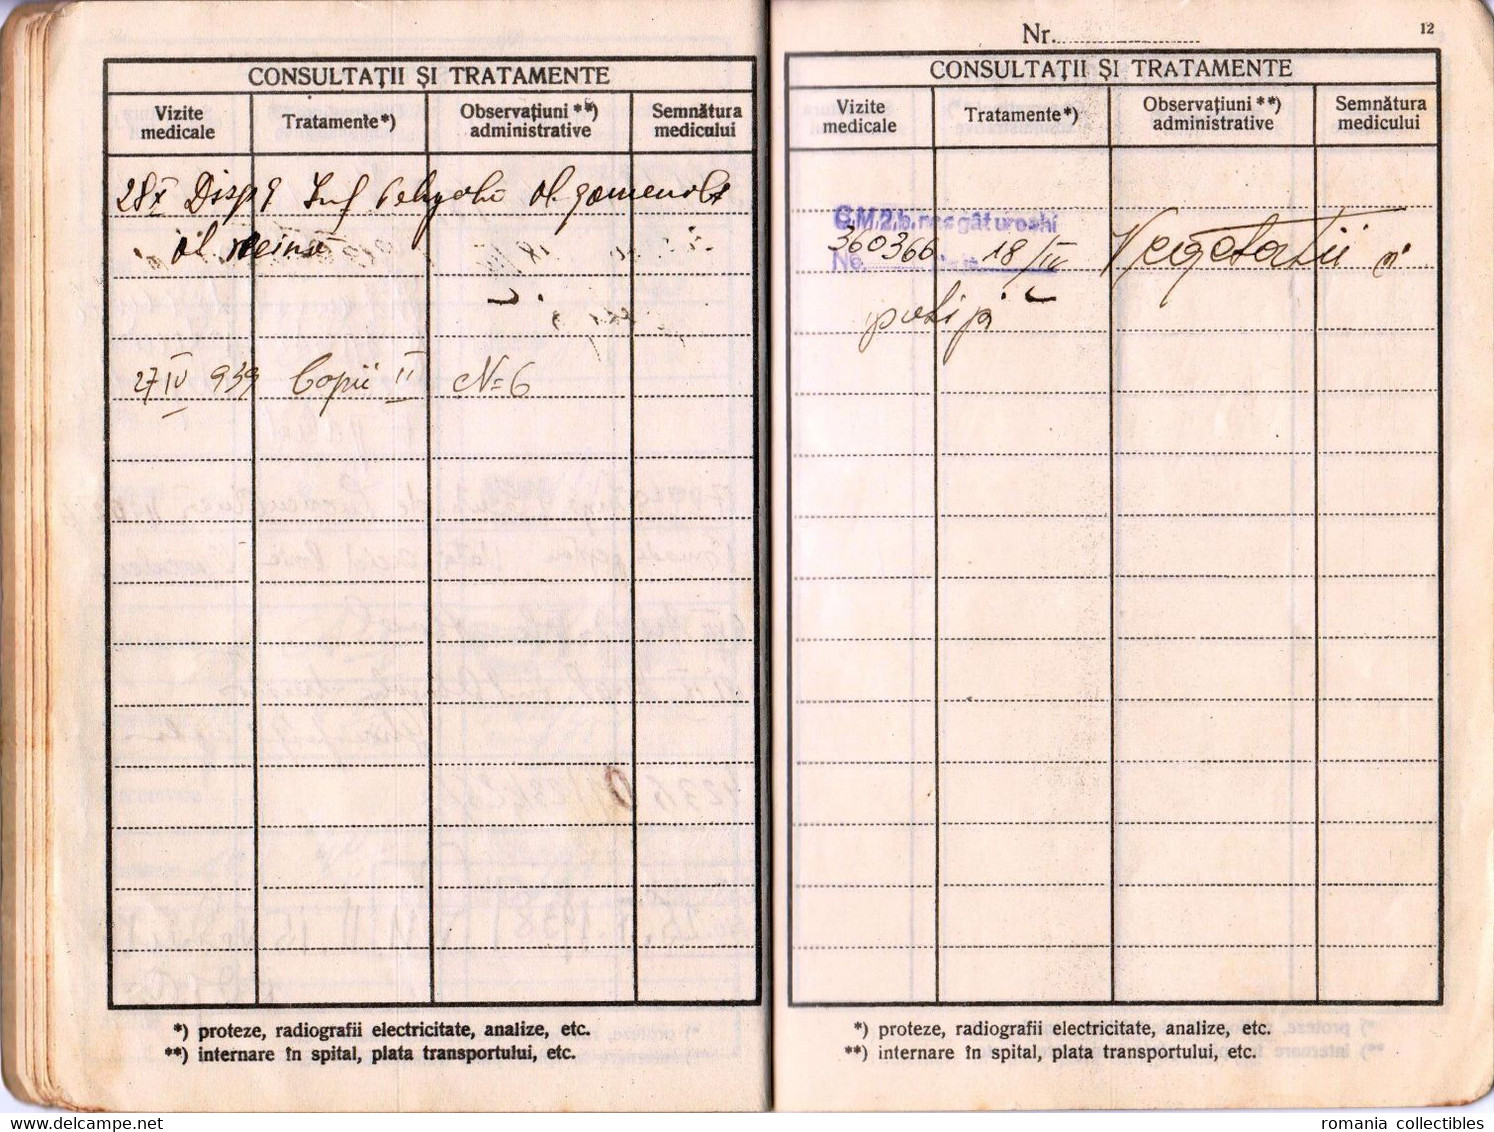 CONSULTAȚII ȘI TRATAMENTE
Vizite medicale
Tratamente*)
Observațiuni **) administrative
Semnătura medicului
28 X Disp
27 IV 939 Copii II N=6
*) proteze, radiografii electricitate, analize, etc.
**) internare în spital, plata transportului, etc.
Nr.
12
CONSULTAȚII ȘI TRATAMENTE
Vizite medicale
Tratamente*)
Observațiuni **) administrative
Semnătura medicului
360366 18/IV Vegetatii
*) proteze, radiografii electricitate, analize, etc.
**) internare în spital, plata transportului, etc.
www.delcampe.net
romania collectibles